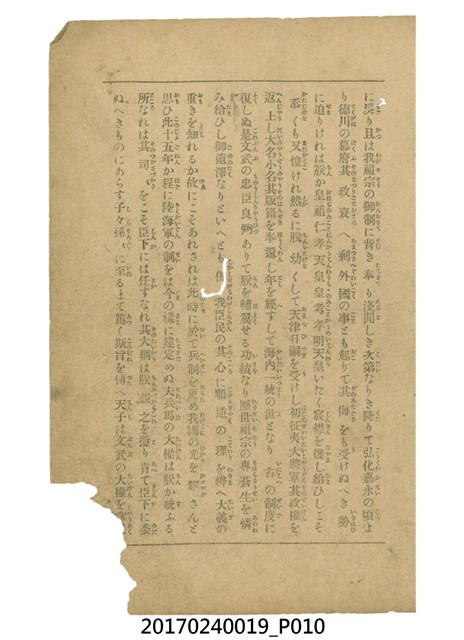 に戻り且は我祖宗の御制に背き奉り淺間しき次第なりき降りて弘化嘉永の頃よ
り德川の幕府其政衰へ剩外國の事とも起りて其侮をも受けぬへき勢
に迫りけれは朕か皇祖仁孝天皇皇考孝明天皇いたく宸襟を惱し給ひしこそ
忝くも又惶けれ然るに朕幼くして天津日嗣を受けし初征夷大將軍其政權を
返上し大名小名其版籍を奉還し年を經すして海内一統の世となり古の制度に
復しぬ是文武の忠臣良弼ありて朕を輔翼せる功績なり歷世祖宗の專蒼生を憐
み給ひし御遺澤なりといへとも我臣民の其心に順逆の理を辨へ大義の
重きを知れるか故にこそあれされは此時に於て兵制を更め我國の光を耀さんと
思ひ此十五年か程に陸海軍の制をは今の樣に建定めぬ夫兵馬の大權は朕か統ふる
所なれは其司々をこそ臣下には任すなれ其大綱は朕親之を攬り肯て臣下に委
ぬへきものにあらす子々孫々に至るまて篤く斯旨を傳へ天子は文武の大權を
20170240019_P010